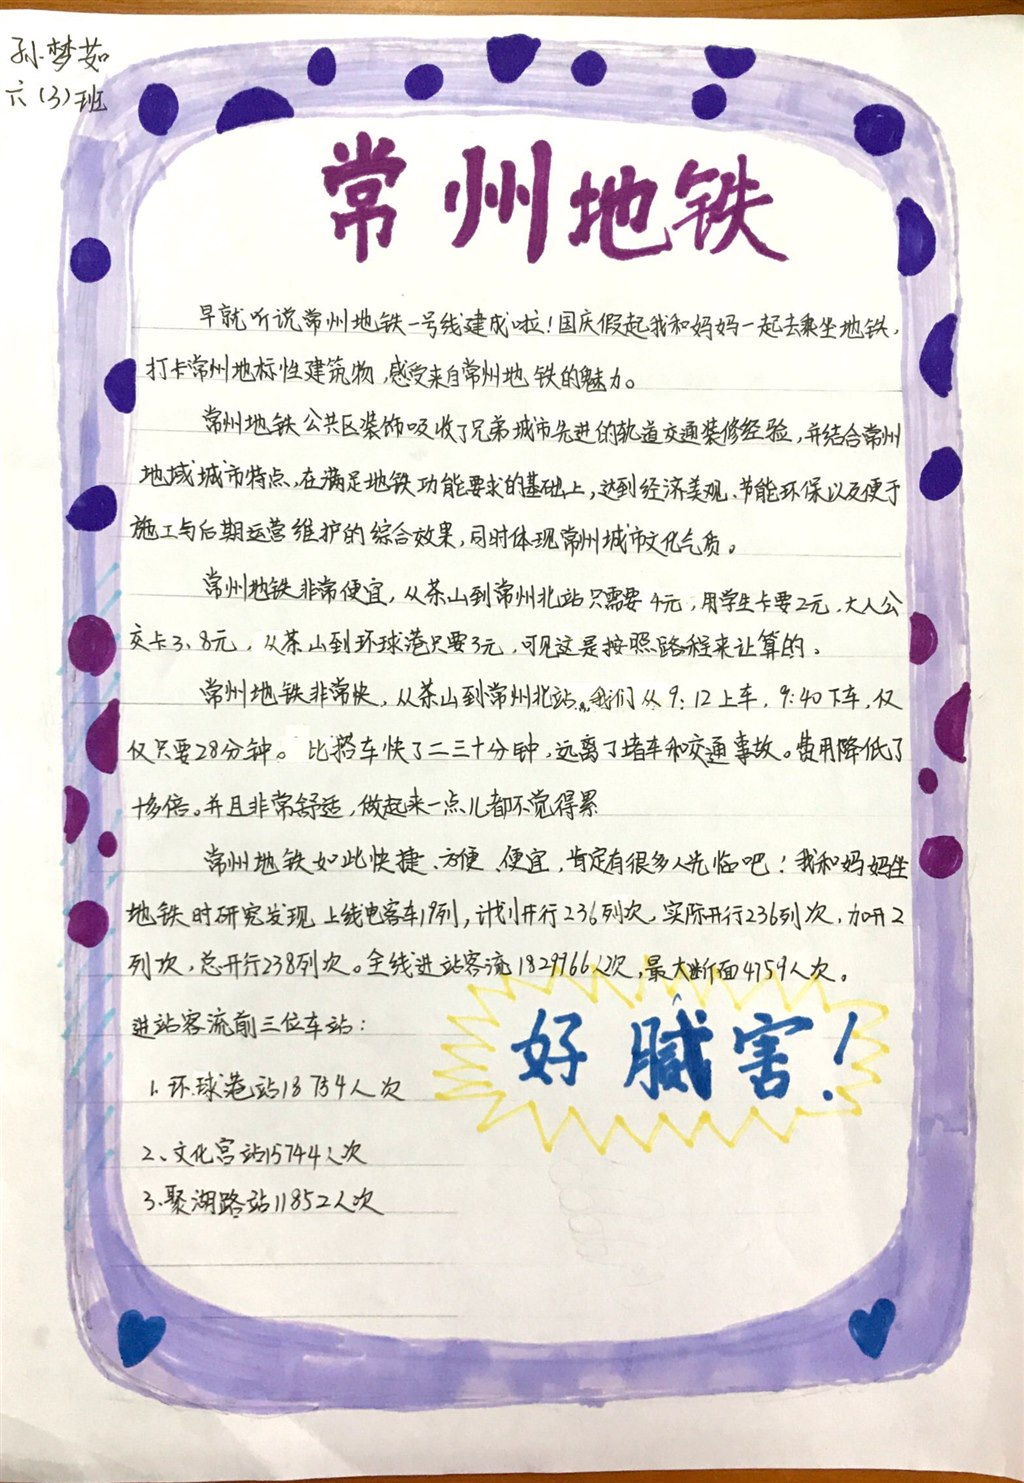 孙梦茹
六(3)班
常州地铁
早就听说常州地铁一号线建成啦!国庆假起我和妈妈一起去乘坐地铁,
打卡常州地标性建筑物,感受来自常州地铁的魅力。
常州地铁公共区装饰吸收了兄弟城市先进的轨道交通装修经验,并结合常州
地域城市特点,在满足地铁功能要求的基础上,达到经济美观、节能环保以及便于
施工与后期运营维护的综合效果,同时体现常州城市文化气质。
常州地铁非常便宜,从茶山到常州北站只需要4元,用学生卡要2元,大人公
交卡3、8元,从茶山到环球港只要3元,可见这是按照路程来计算的。
常州地铁非常快,从茶山到常州北站,我们从9:12上车,9:40下车,仅
仅只要28分钟。比搭车快了二三十分钟,远离了堵车和交通事故。费用降低了
十多倍。并且非常舒适,做起来一点儿都不觉得累
常州地铁如此快捷、方便、便宜,肯定有很多人光临吧!我和妈妈坐
地铁时研究发现上线电客车19列,计划开行236列次,实际开行236列次,加开2
列次,总开行238列次。全线进站客流1829966人次,最大断面4759人次。
进站客流前三位车站:
1.环球港站18734人次
2、文化宫站15744人次
3.聚湖路站11852人次
好腻害!